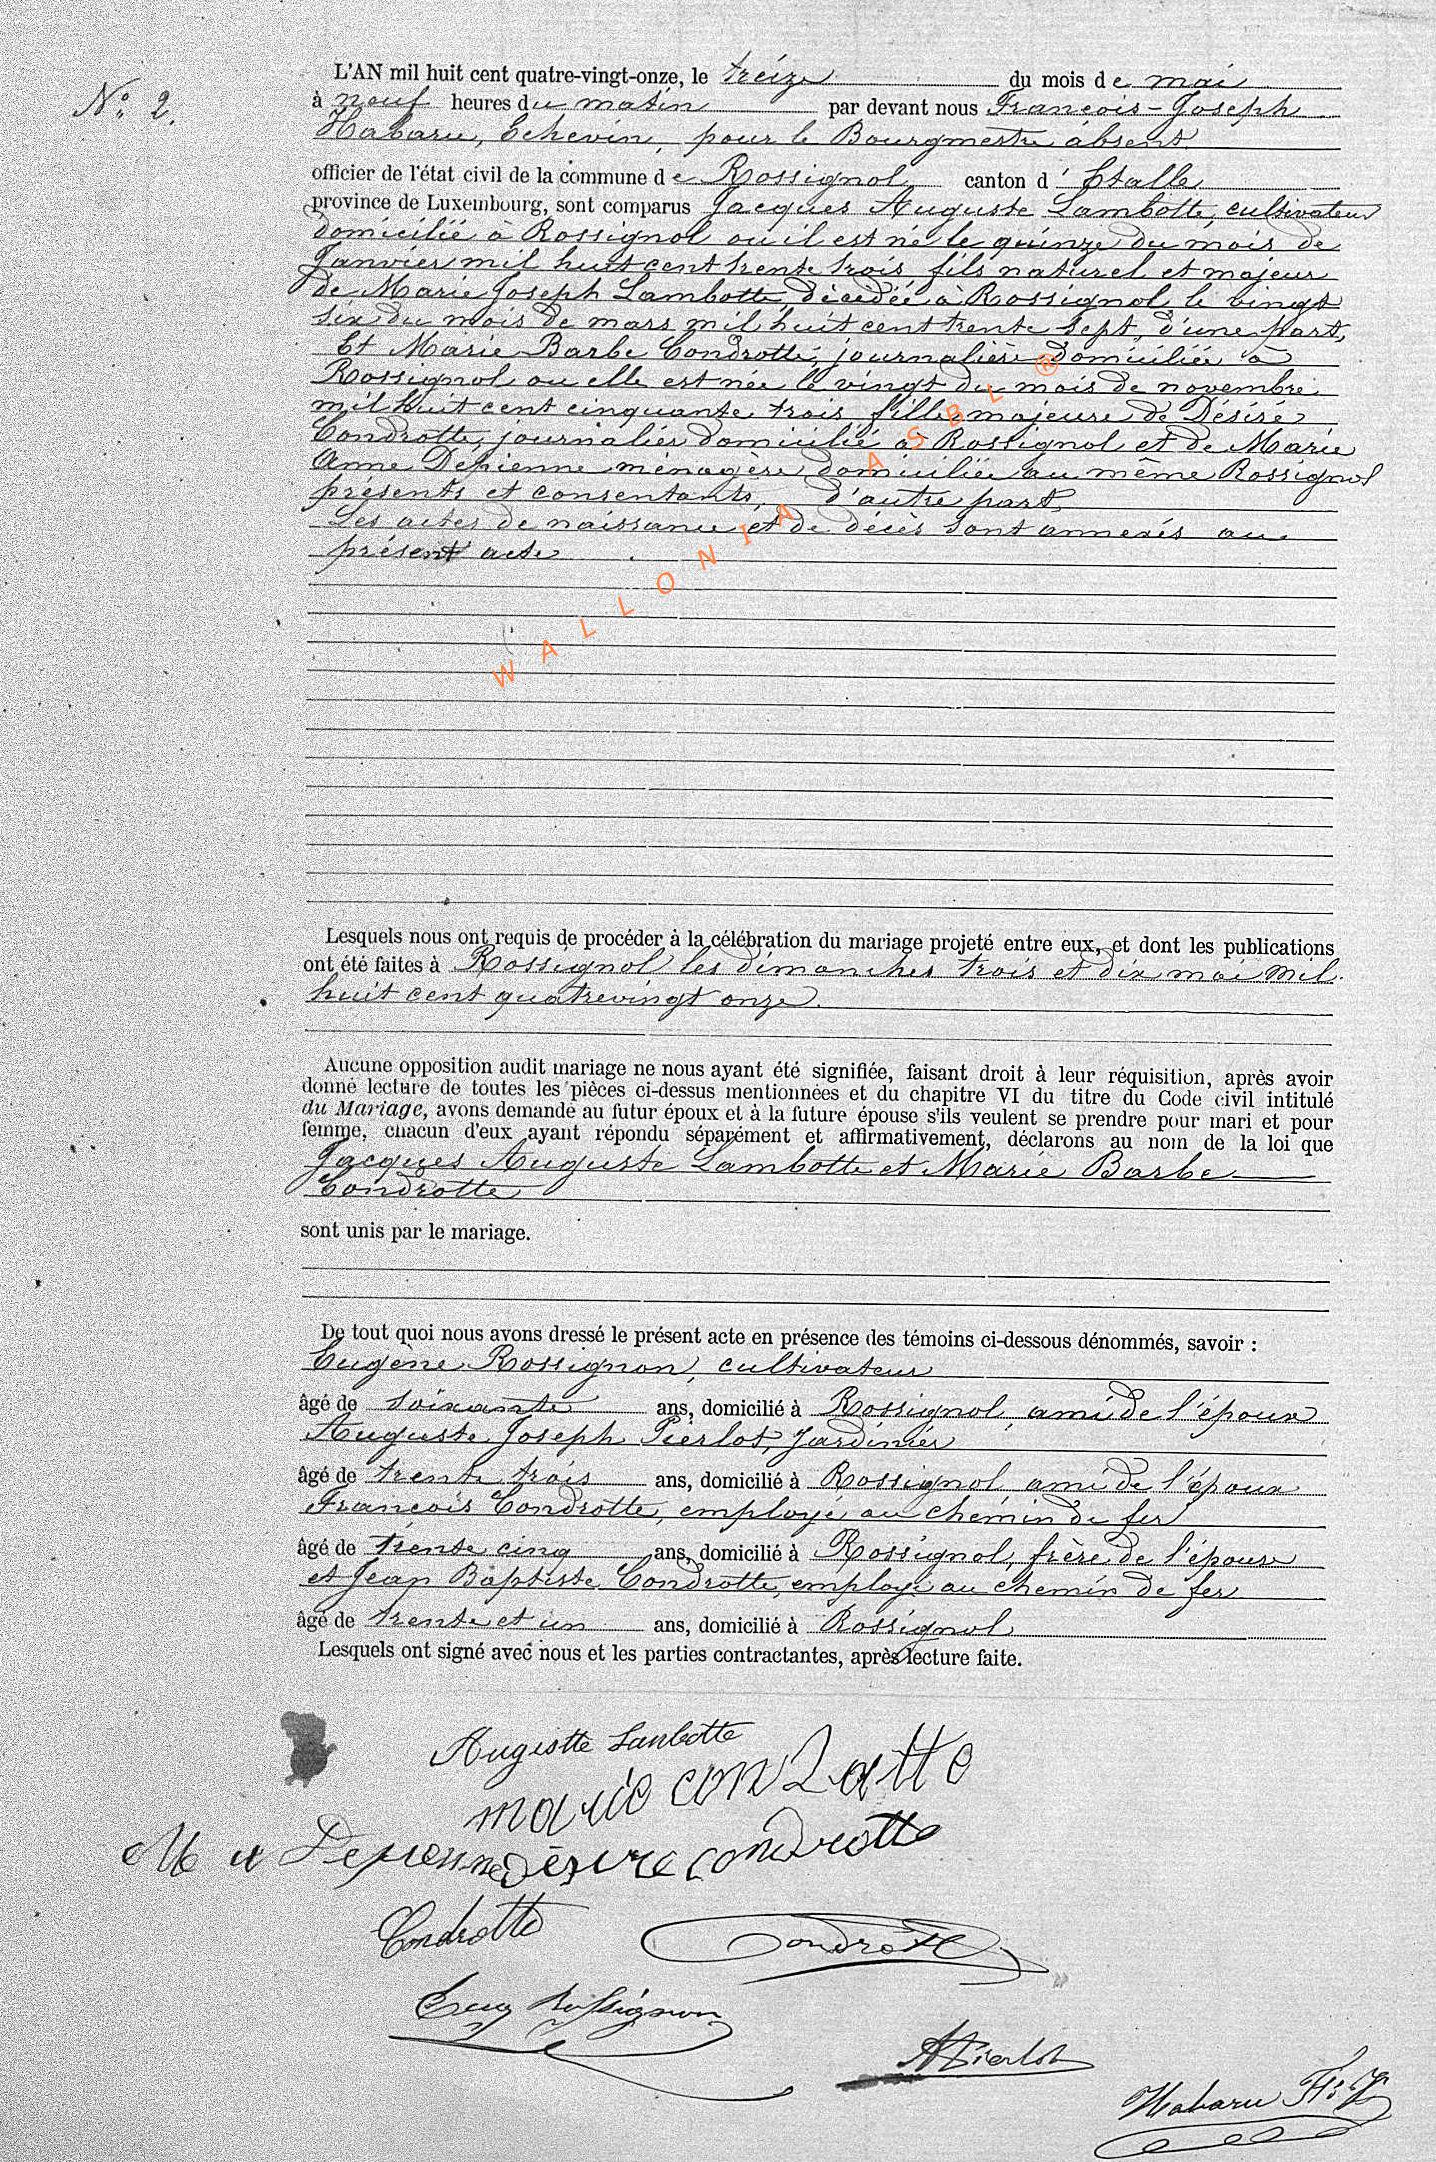 N.o 2.
L'AN mil huit cent quatre-vingt-onze, le treize du mois de mai
à neuf heures du matin par devant nous François-Joseph
Habaru, Echevin, pour le Bourgmestre absent
officier de l'état civil de la commune de Rossignol canton d'Etalle
province de Luxembourg, sont comparus Jacques Auguste Lambotte, cultivateur
domicilié à Rossignol ou il est né le quinze du mois de
Janvier mil huit cent trente trois fils naturel et majeur
de Marie Joseph Lambotte, décédée à Rossignol le vingt
six du mois de mars mil huit cent trente sept, d'une part,
Et Marie Barbe Condrotte, journalière domiciliée à
Rossignol ou elle est née le vingt du mois de novembre
mil huit cent cinquante trois fille majeure de Désiré
Condrotte, journalier domicilié à Rossignol et de Marie
Anne Dépienne ménagère domiciliée au même Rossignol
présents et consentants, d'autre part,
Les actes de naissance et de décès sont annexés au
présent acte
WALLONIA ASBL ®
Lesquels nous ont requis de procéder à la célébration du mariage projeté entre eux, et dont les publications
ont été faites à Rossignol les dimanches trois et dix mai mil
huit cent quatrevingt onze.
Aucune opposition audit mariage ne nous ayant été signifiée, faisant droit à leur réquisition, après avoir
donné lecture de toutes les pièces ci-dessus mentionnées et du chapitre VI du titre du Code civil intitulé
du Mariage, avons demandé au futur époux et à la future épouse s'ils veulent se prendre pour mari et pour
femme, chacun d'eux ayant répondu séparément et affirmativement, déclarons au nom de la loi que
Jacques Auguste Lambotte et Marie Barbe
Condrotte
sont unis par le mariage.
De tout quoi nous avons dressé le présent acte en présence des témoins ci-dessous dénommés, savoir :
Eugène Rossignon, cultivateur
âgé de soixante ans, domicilié à Rossignol, ami de l'époux
Auguste Joseph Pierlot, Jardinier
âgé de trente trois ans, domicilié à Rossignol ami de l'époux
François Condrotte, employé au chemin de fer
âgé de trente cinq ans, domicilié à Rossignol, frère de l'épouse
et Jean Baptiste Condrotte, employé au chemin de fer
âgé de trente et un ans, domicilié à Rossignol
Lesquels ont signé avec nous et les parties contractantes, après lecture faite.
Augustte Lambotte
marie condrotte
M a Depienne Désire condrotte
Condrotte Condrotte
Eug Rossignon
A Pierlot
Habaru Fs J